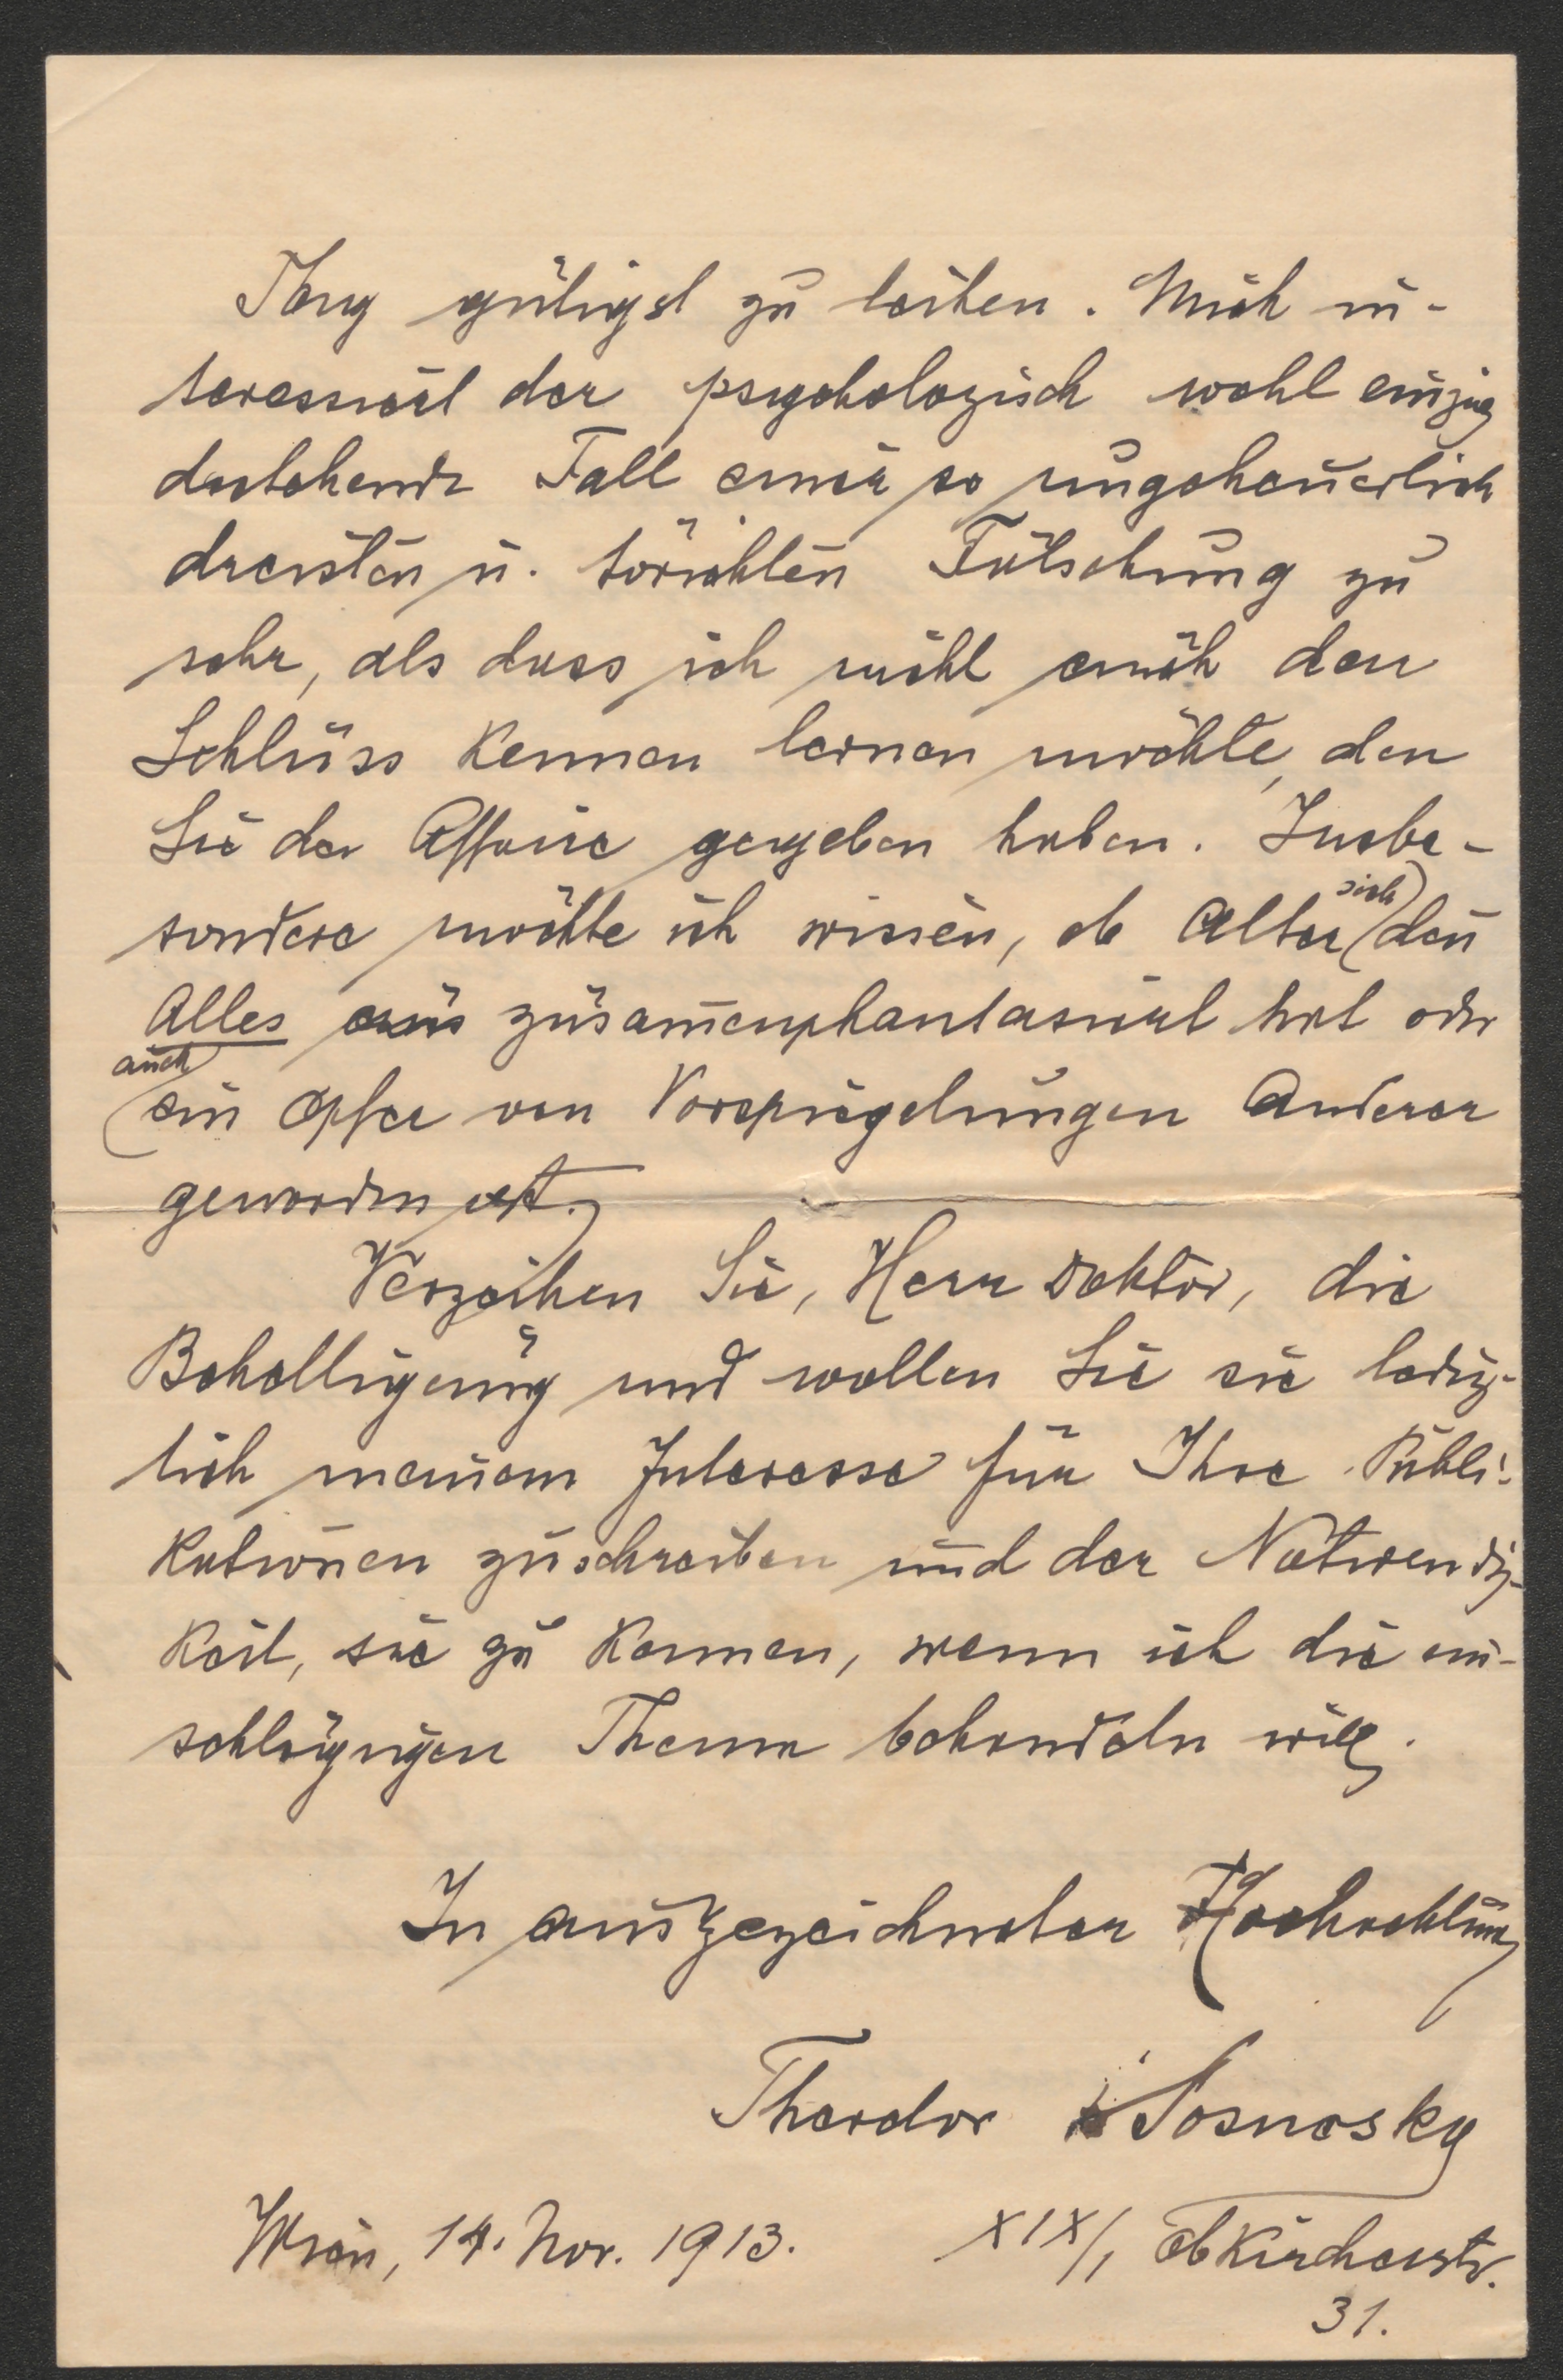 Tag gütigst zu leihen. Mich in-
teressiert der psychologisch wohl einzig
dastehende Fall einer so ungeheuerlich
dreisten u. törichten Fälschung zu
sehr, als dass ich nicht auch den
Schluss kennen lernen möchte, den
Sie der Affaire gegeben haben. Insbe-
sondere möchte ich wissen, ob Alter sich den
Alles aus zusam̅enphantasiert hat oder
auch ein Opfer von Vorspiegelungen Anderer
geworden ist.
Verzeihen Sie, Herr Doktor, die
Behelligung und wollen Sie sie ledig-
lich meinem Interesse für Ihre Publi-
kationen zuschreiben und der Notwendig-
keit, sie zu kennen, wenn ich die ein-
schlägigen Thema behandeln will.
In ausgezeichneter Hochachtung
Theodor v Sosnosky
Wien, 14. Nov. 1913. XIX/1 Obkircherstr.
31.